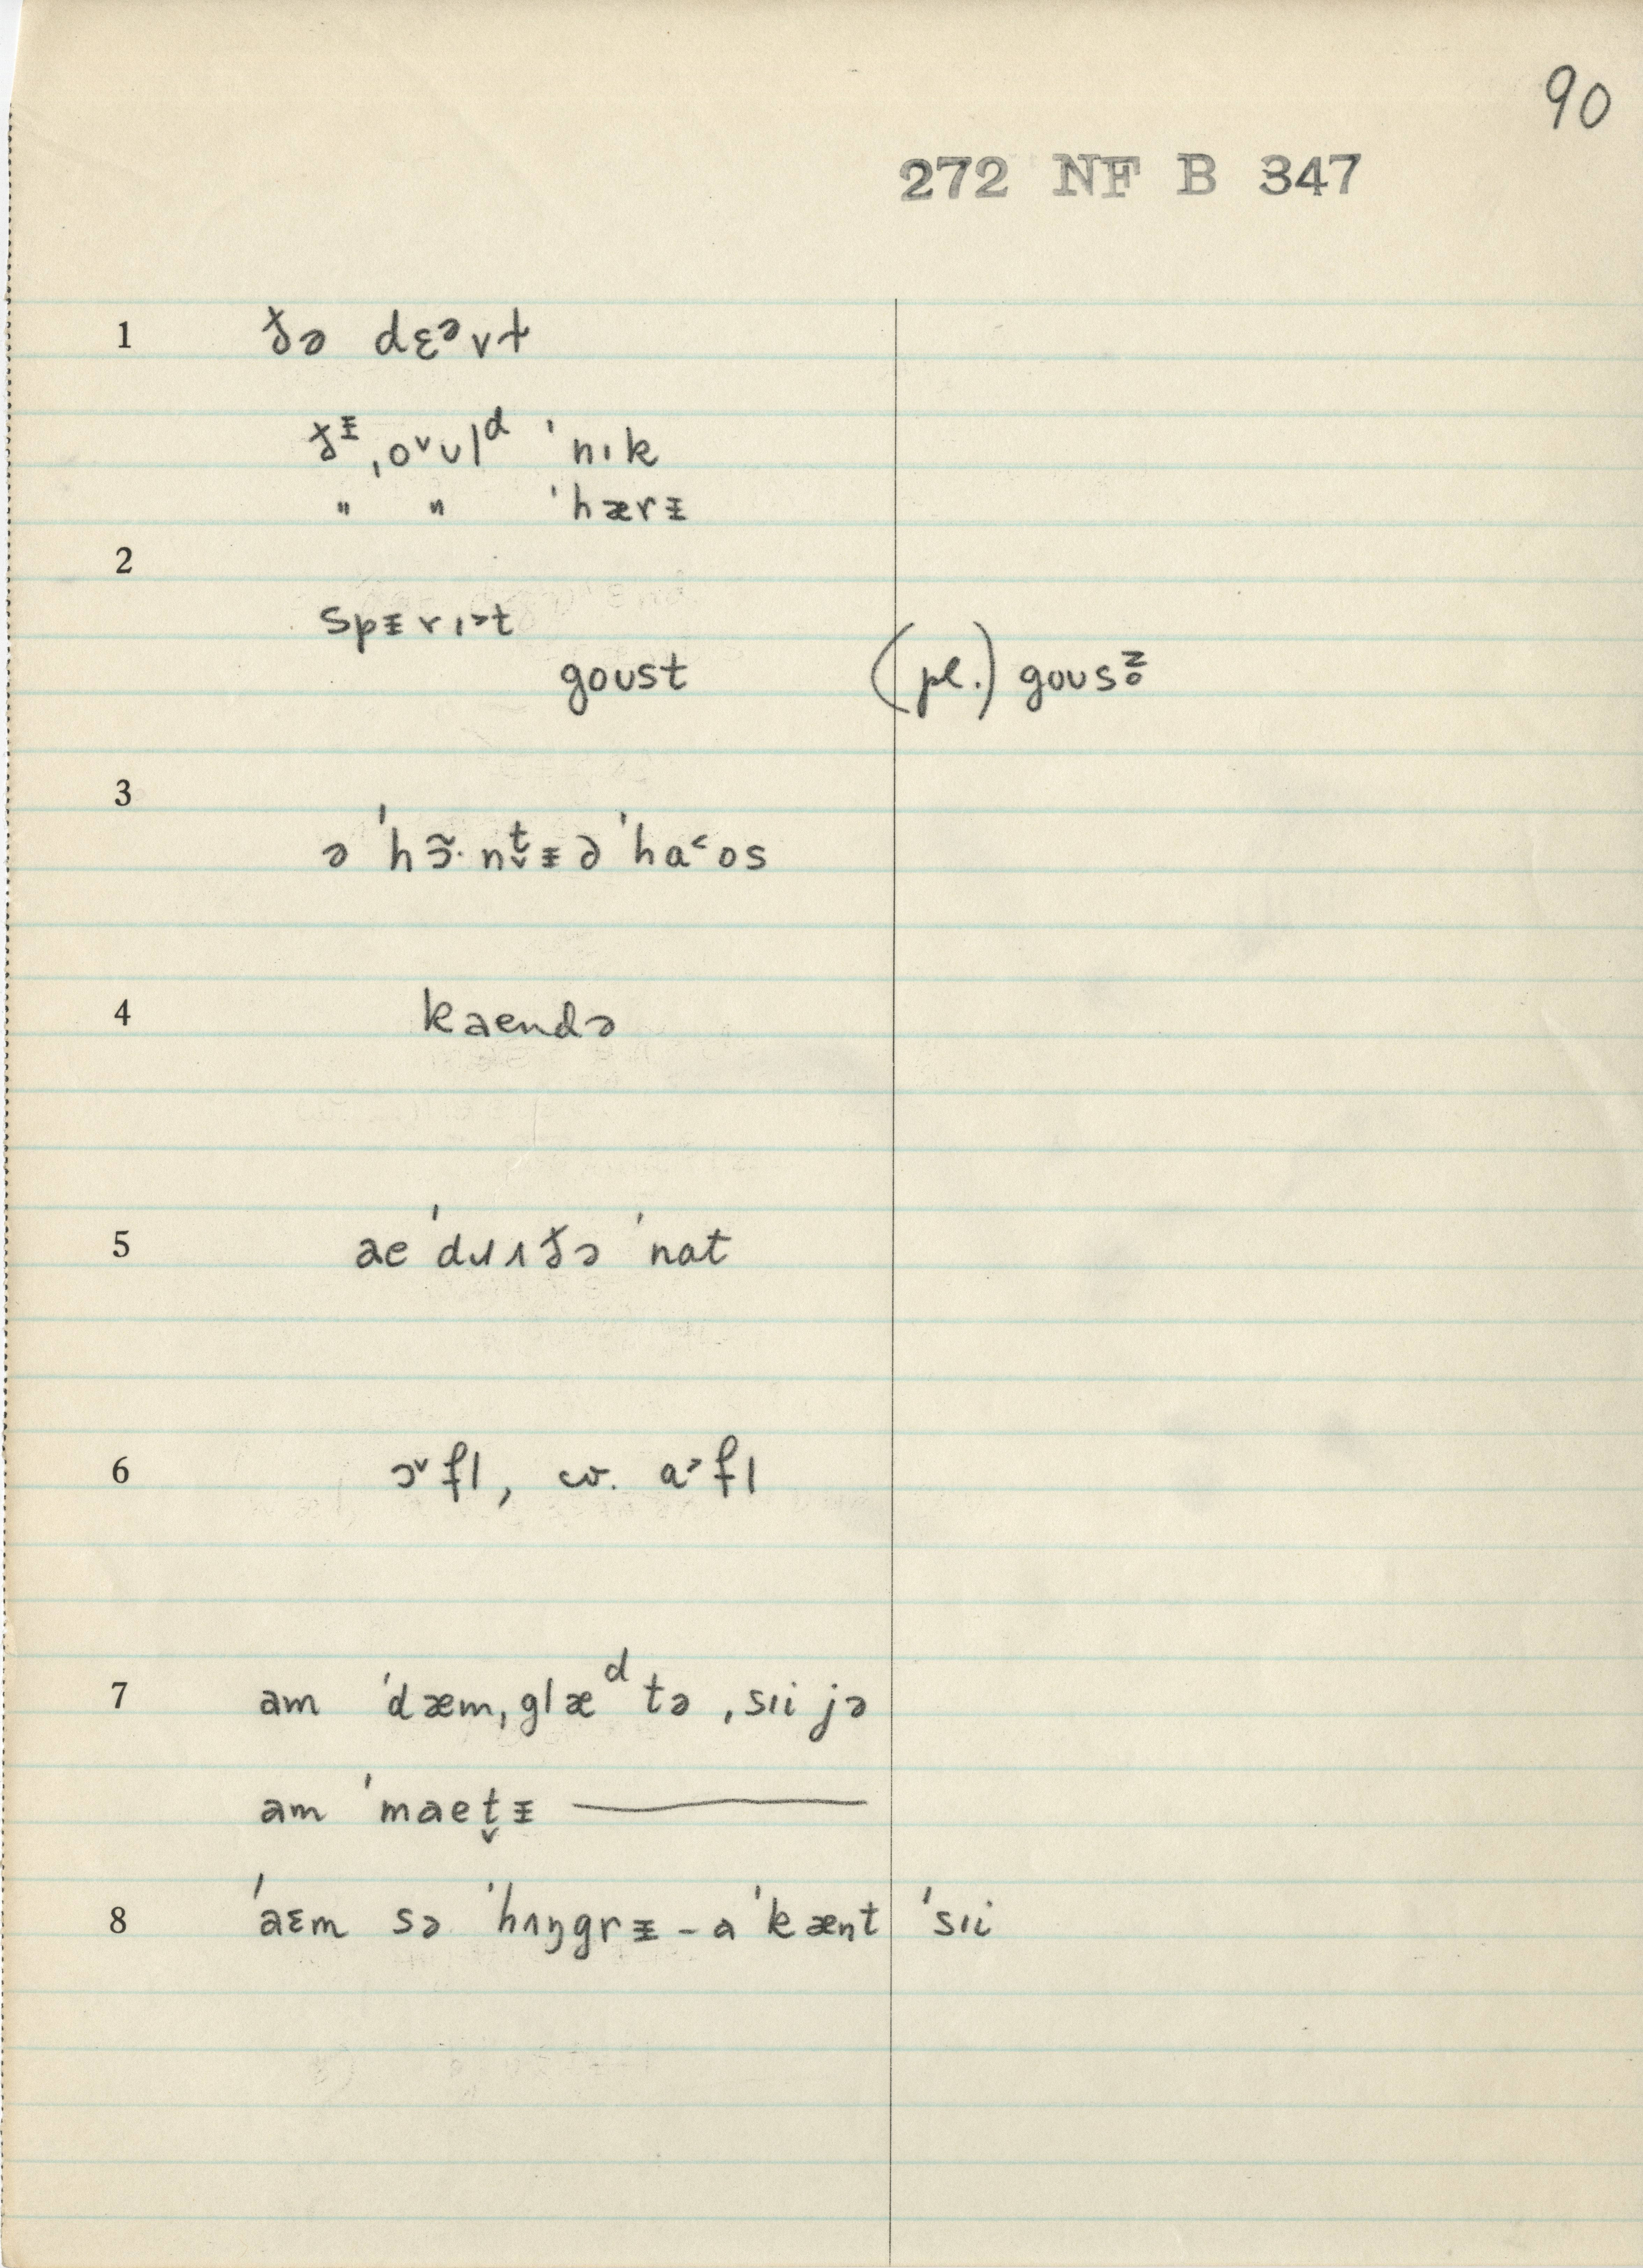 90
272 NF B 347
1 ðə dɛᵊvɫ
ðᶧ ˌo˅ʊlᵈ ˈnɪk
" " ˈhærᵻ
2
spᵻrɪ˃t
goʊst (pl.) goʊsz̥
3
ə ˈhɔ̃·nt̬ᵻə ˈha˂os
4 kaendə
5 ae ˈdʊʌðə ˈnat
6 ɔ˅fl, cv. ɑ˃fl
7 am ˈdæmˌglæᵈ tə ˌsɪi jə
am ˈmaet̬ᵻ ———
8 ˈaɛm sə ˈhʌŋgrᵻ – a ˈkænt ˈsɪi